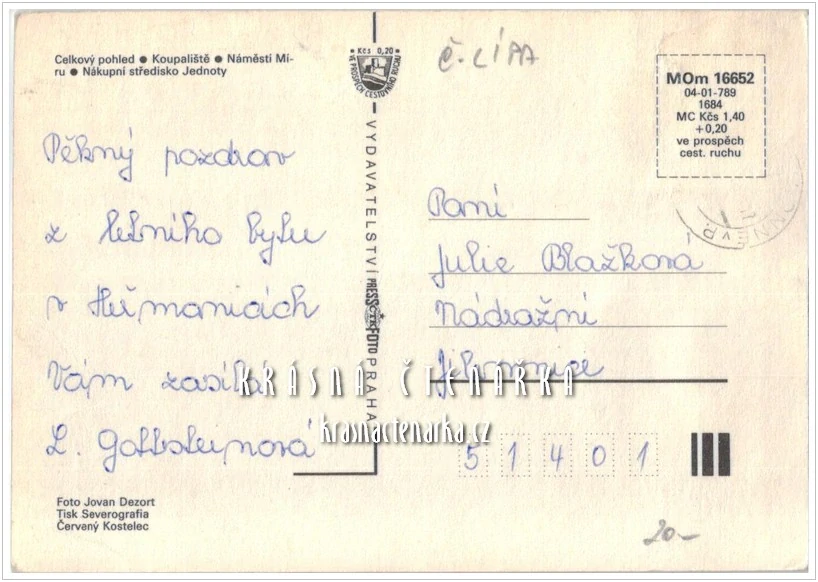 Celkový pohled ● Koupaliště ● Náměstí Mí-
ru ● Nákupní středisko Jednoty
Pěkný pozdrav
z letního bytu
v Heřmanicích
Vám zasílá
L. Gottsteinová
Foto Jovan Dezort
Tisk Severografia
Červený Kostelec
Kčs 0,20
VE PROSPĚCH CESTOVNÍHO RUCHU
VYDAVATELSTVÍ PRESSFOTO PRAHA
Č. LÍPA
MOm 16652
04-01-789
1684
MC Kčs 1,40
+0,20
ve prospěch
cest. ruchu
Paní
Julie Blažková
Nádražní
Jilemnice
51401
20-
KRÁSNÁ ČTENÁŘKA
krasnactenarka.cz